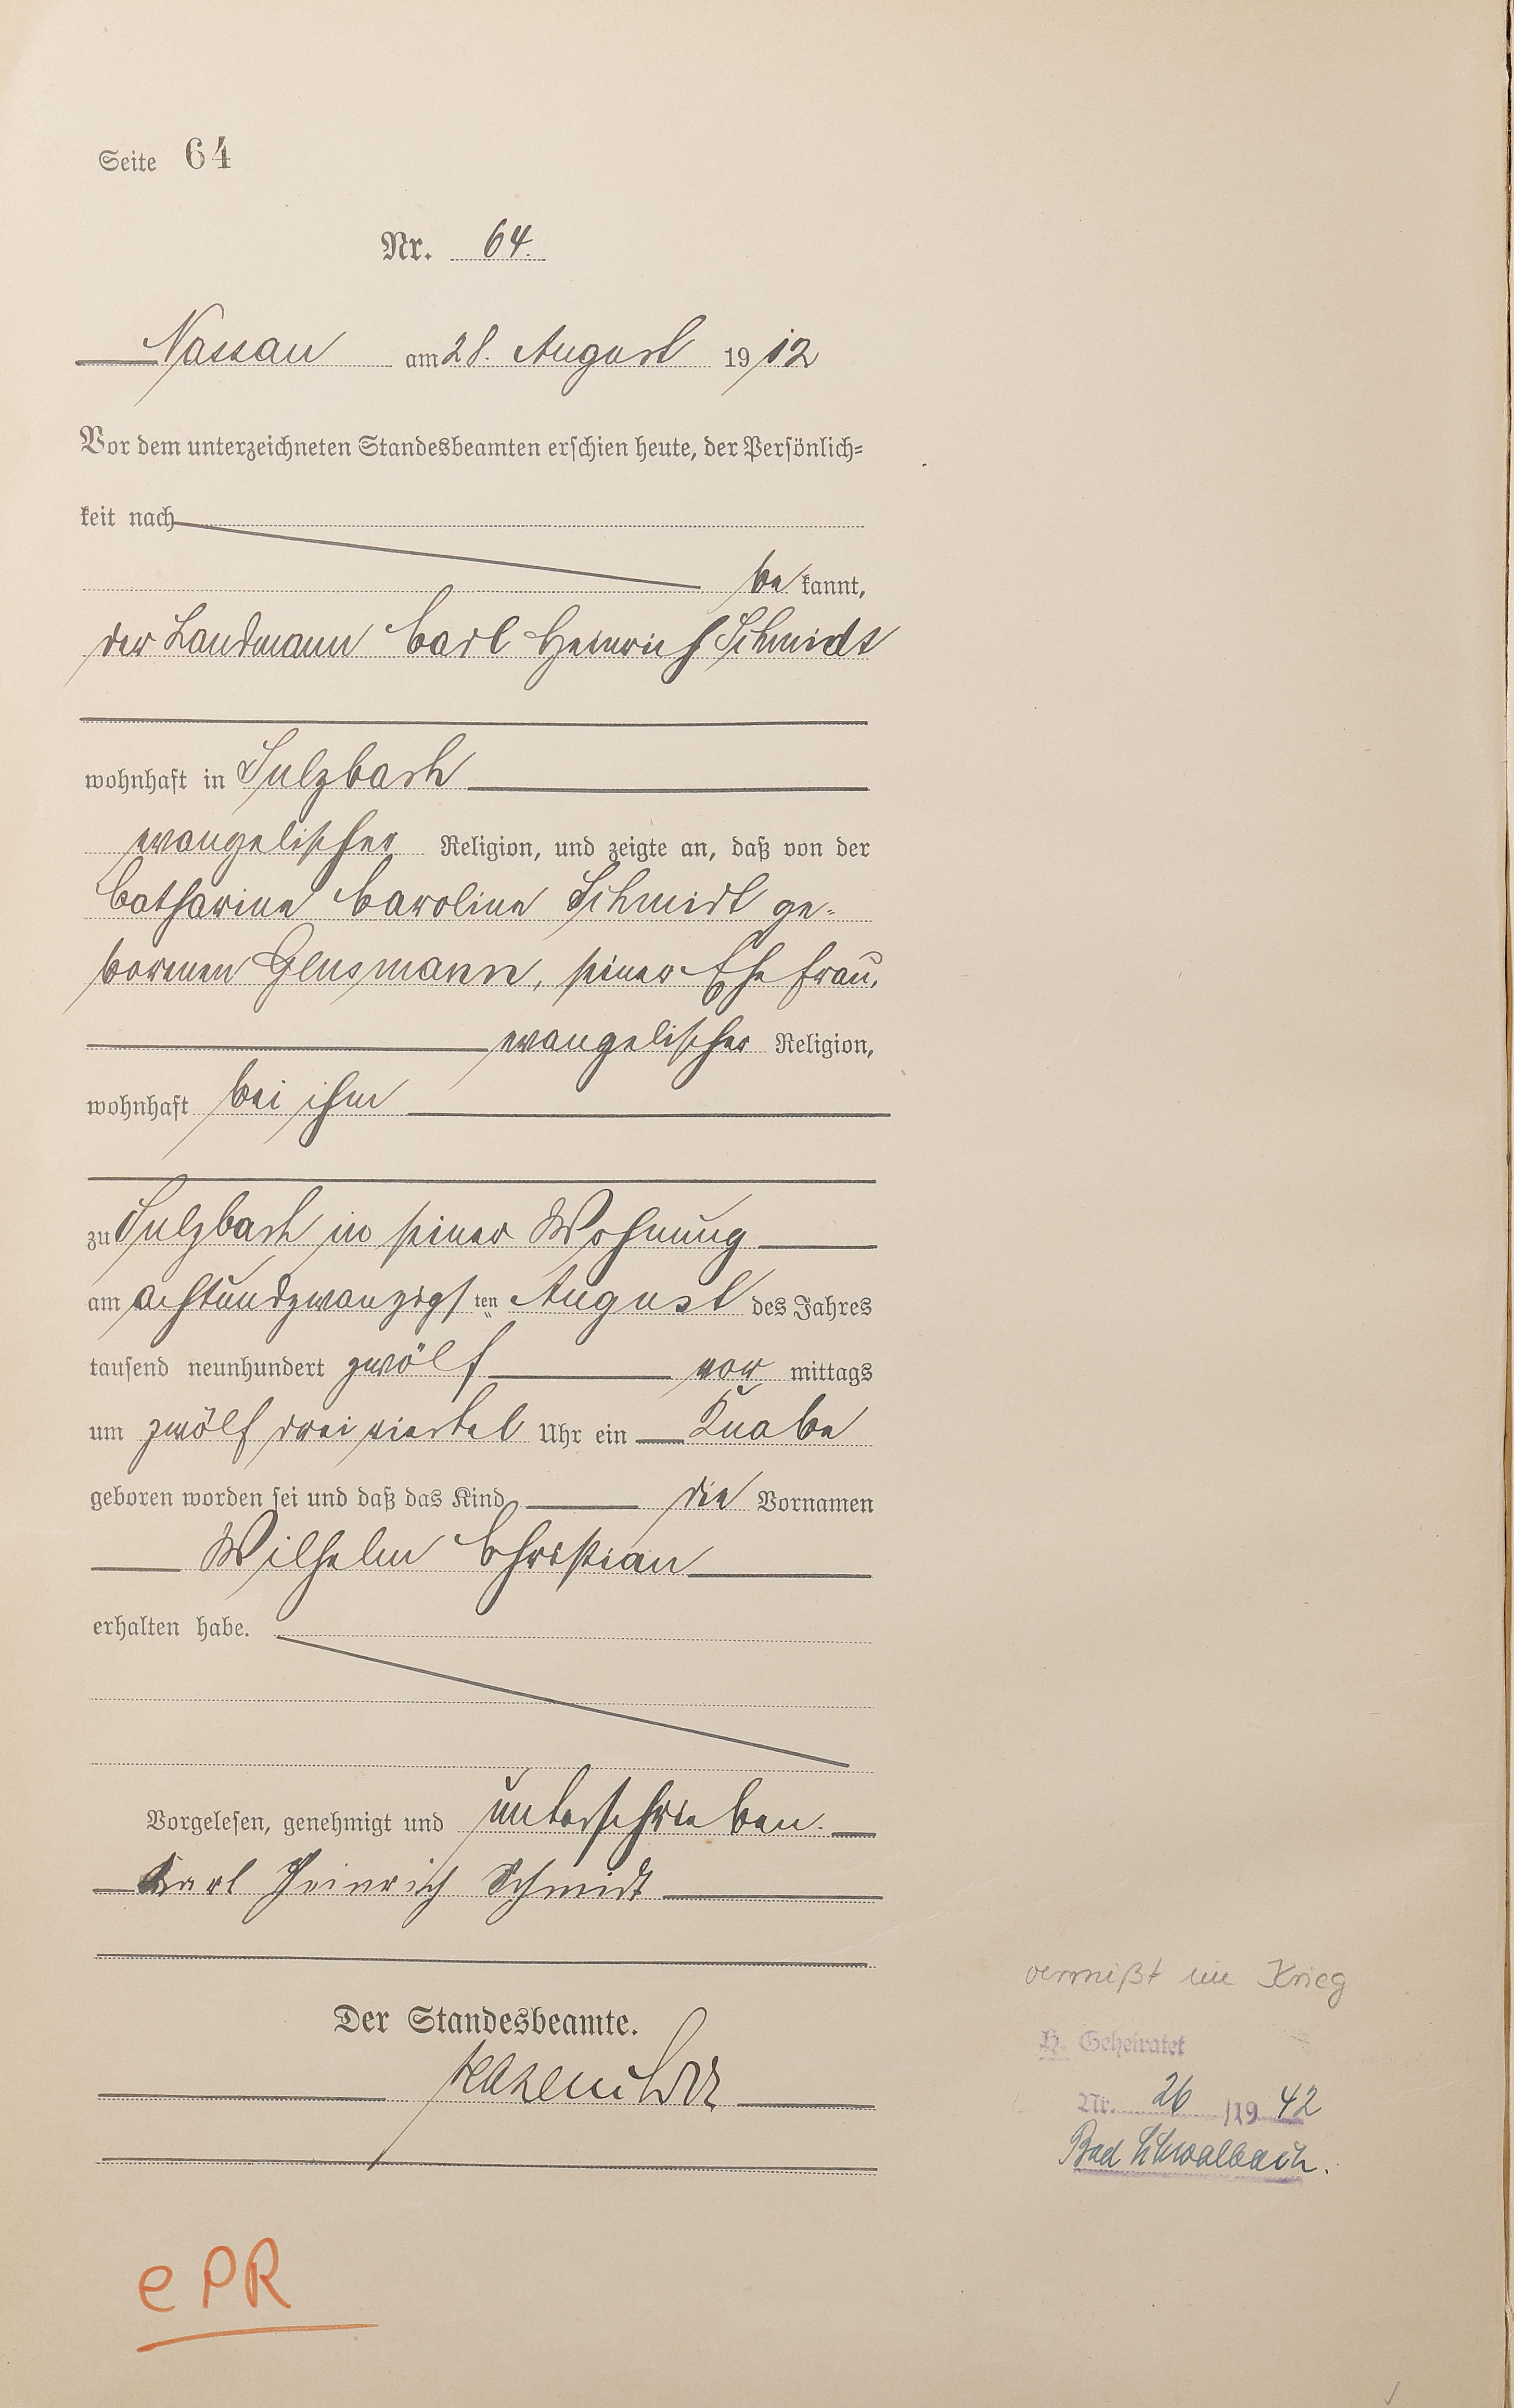 Seite 64
Nr. 64.
Nassau am 28. August 1912
Vor dem unterzeichneten Standesbeamten erschien heute, der Persönlich=
keit nach
be kannt,
der Landmann Carl Heinrich Schmidt
wohnhaft in Sulzbach
evangelischer Religion, und zeigte an, daß von der
Catharine Caroline Schmidt ge-
borenen Gensmann, seiner Ehefrau,
evangelischer Religion,
wohnhaft bei ihm
zu Sulzbach in seiner Wohnung
am achtundzwanzigs ten August des Jahres
tausend neunhundert zwölf vor mittags
um zwölf dreiviertel Uhr ein Knabe
geboren worden sei und daß das Kind die Vornamen
Wilhelm Christian
erhalten habe.
Vorgelesen, genehmigt und unterschrieben.
Karl Heinrich Schmidt
Der Standesbeamte.
vermißt im Krieg
H. Geheiratet
Nr. 26 /1942
Bad Schwalbach.
e PR